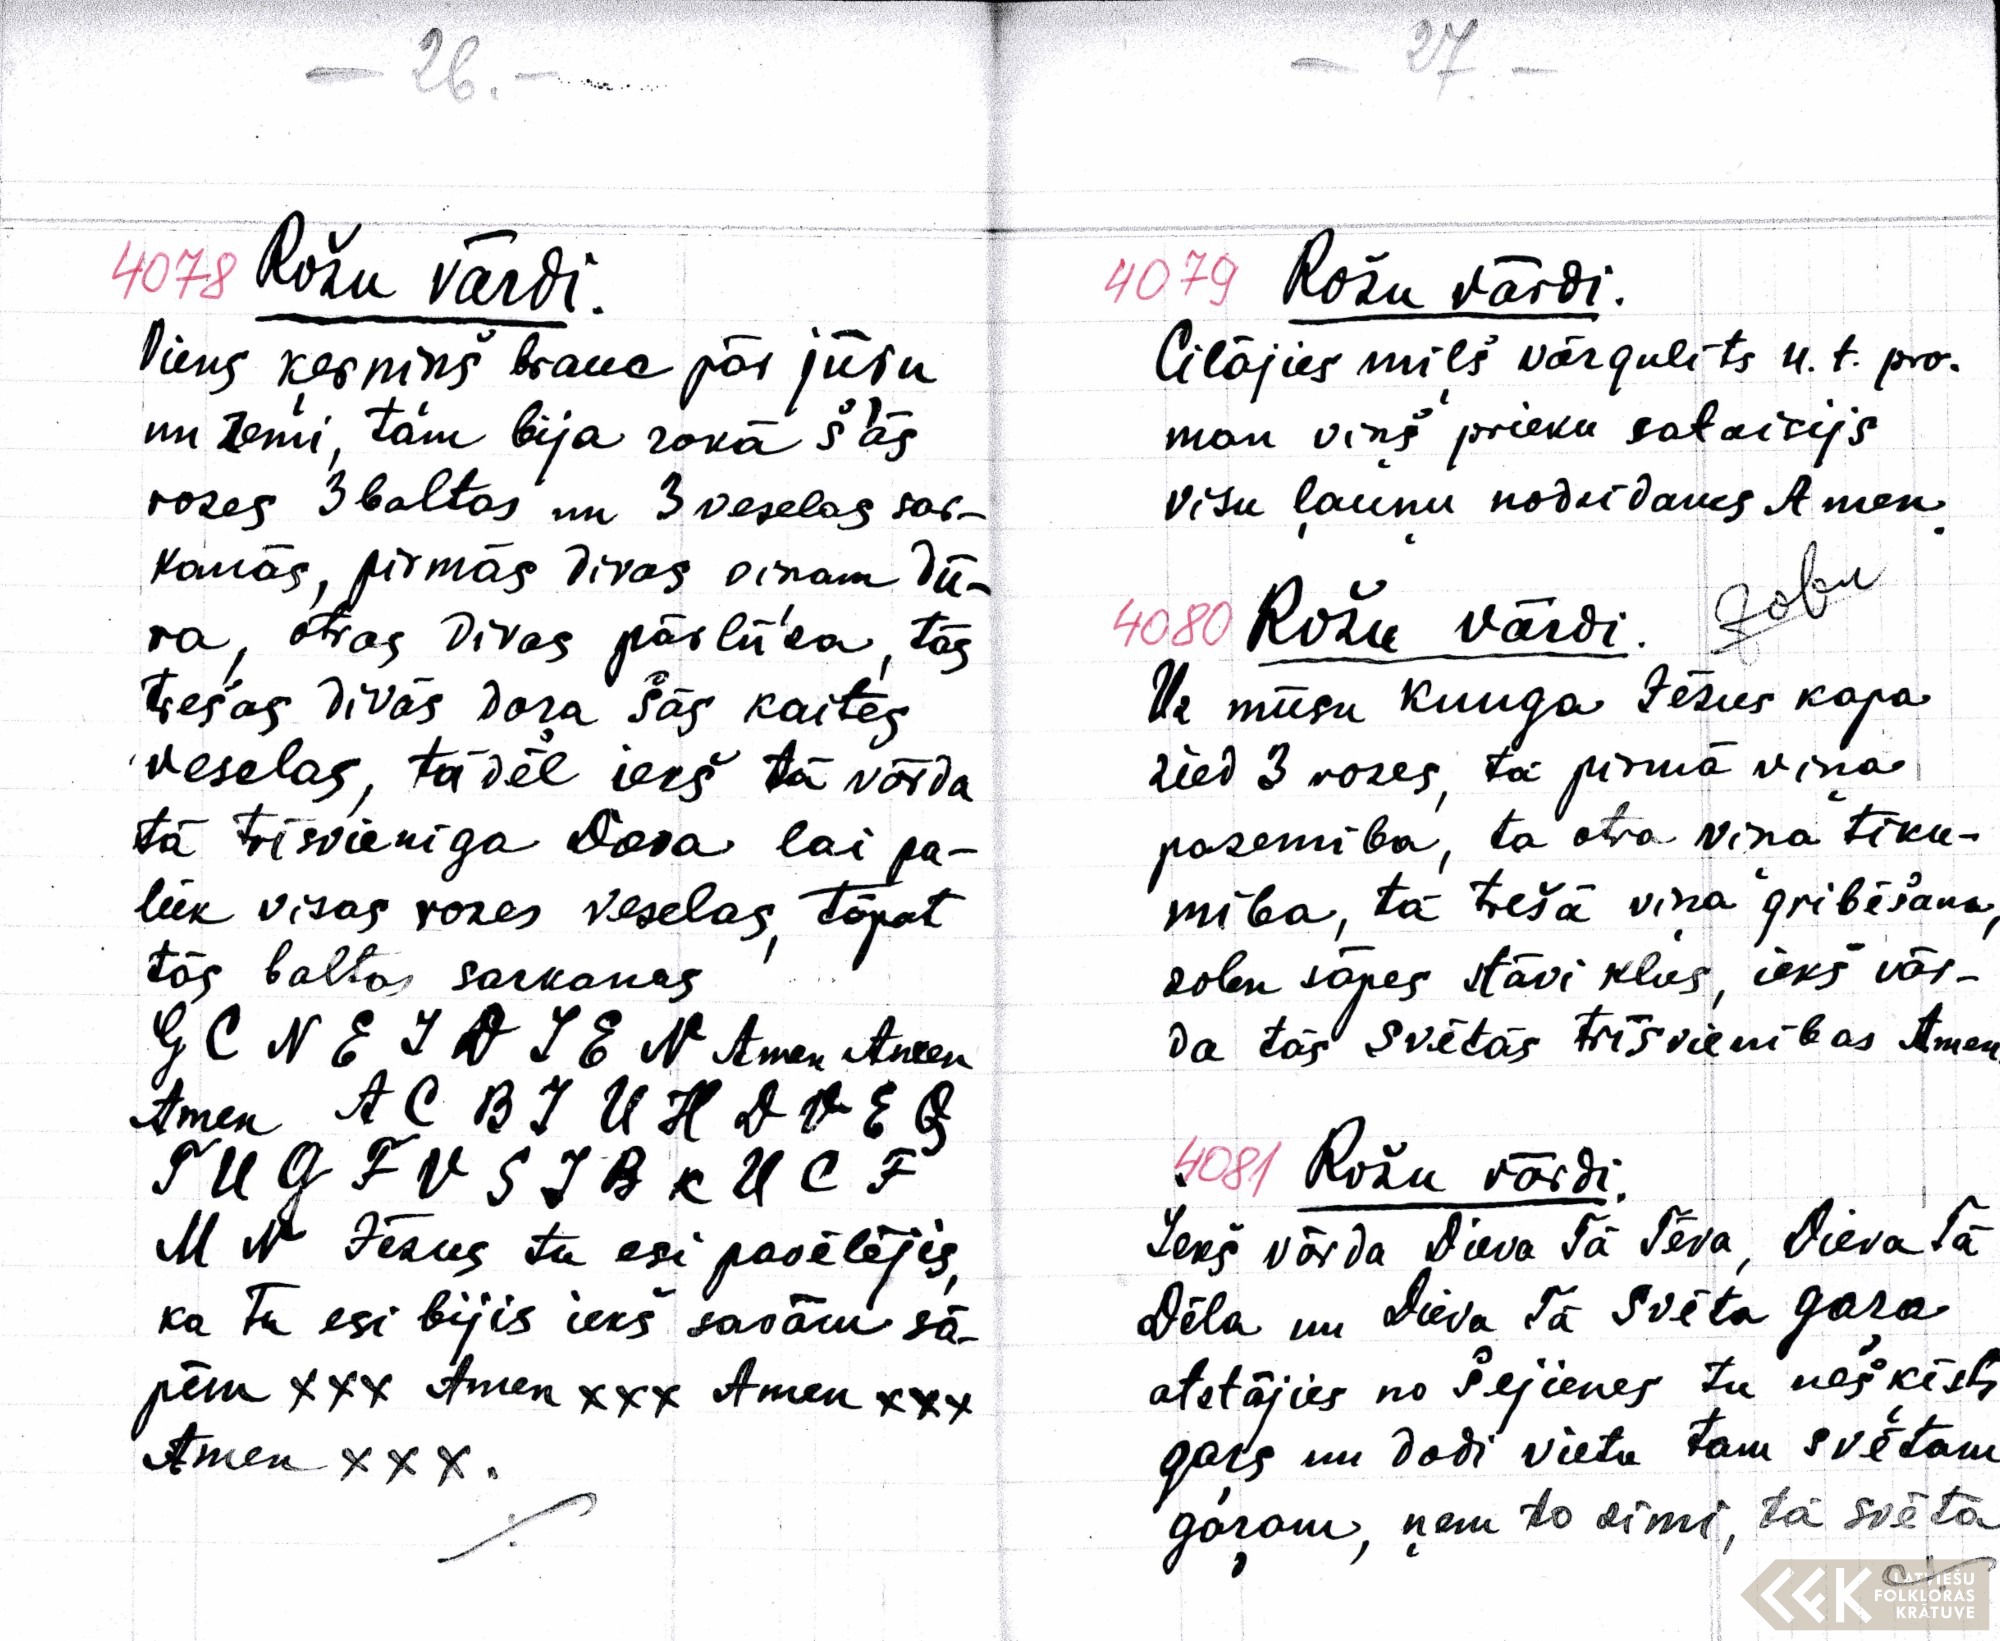 - 26. -
4078 Rožu vārdi.
Viens ķerniņš brauc pār jūŗu
un zemi, tam bija rokā šās
rozes 3 baltas un 3 veselas sar-
kanās, pirmās divas viņam dū-
ra, otras divas pārlūza, tās
trešas divās dora šās kaites
veselas, tādēļ iekš tā vārda
tā trīsvieniga Dova lai pa-
liek visas rozes veselas, tāpat
tās baltas sarkanas
G C N E I D I E N Amen Amen
Amen A C B I U H D V E Q
T U G F V S I B K U C F
M N Jēzus tu esi pavēlējis,
ka Tu esi bijis iekš savām sā-
pēm xxx Amen xxx Amen xxx
Amen xxx.
- 27. -
4079 Rožu vārdi.
Cilājies mīļš vārgulits u.t. pro.
man viņš prieku sataisijs
visu ļauņu nodzidams Amen.
4080 Rožu vārdi. Zobu
Uz mūsu Kunga Jēzus kapa
zied 3 rozes, tā pirmā viņa
pazemiba, ta otra viņa tiku-
miba, tā trešā viņa gribēšana,
zobu sāpes stāvi klus, iekš vār-
da tās svētās trīsvienibas Amen.
4081 Rožu vārdi.
Iekš vārda Dieva Tā Tēva, Dieva Tā
Dēla un Dieva Tā Svēta gara
atstājies no šejienes tu nešķīsts
gars un dodi vietu tam svētam
gaŗam, ņem to zimi, tā svēta
LATVIEŠU
FOLKLORAS
KRĀTUVE